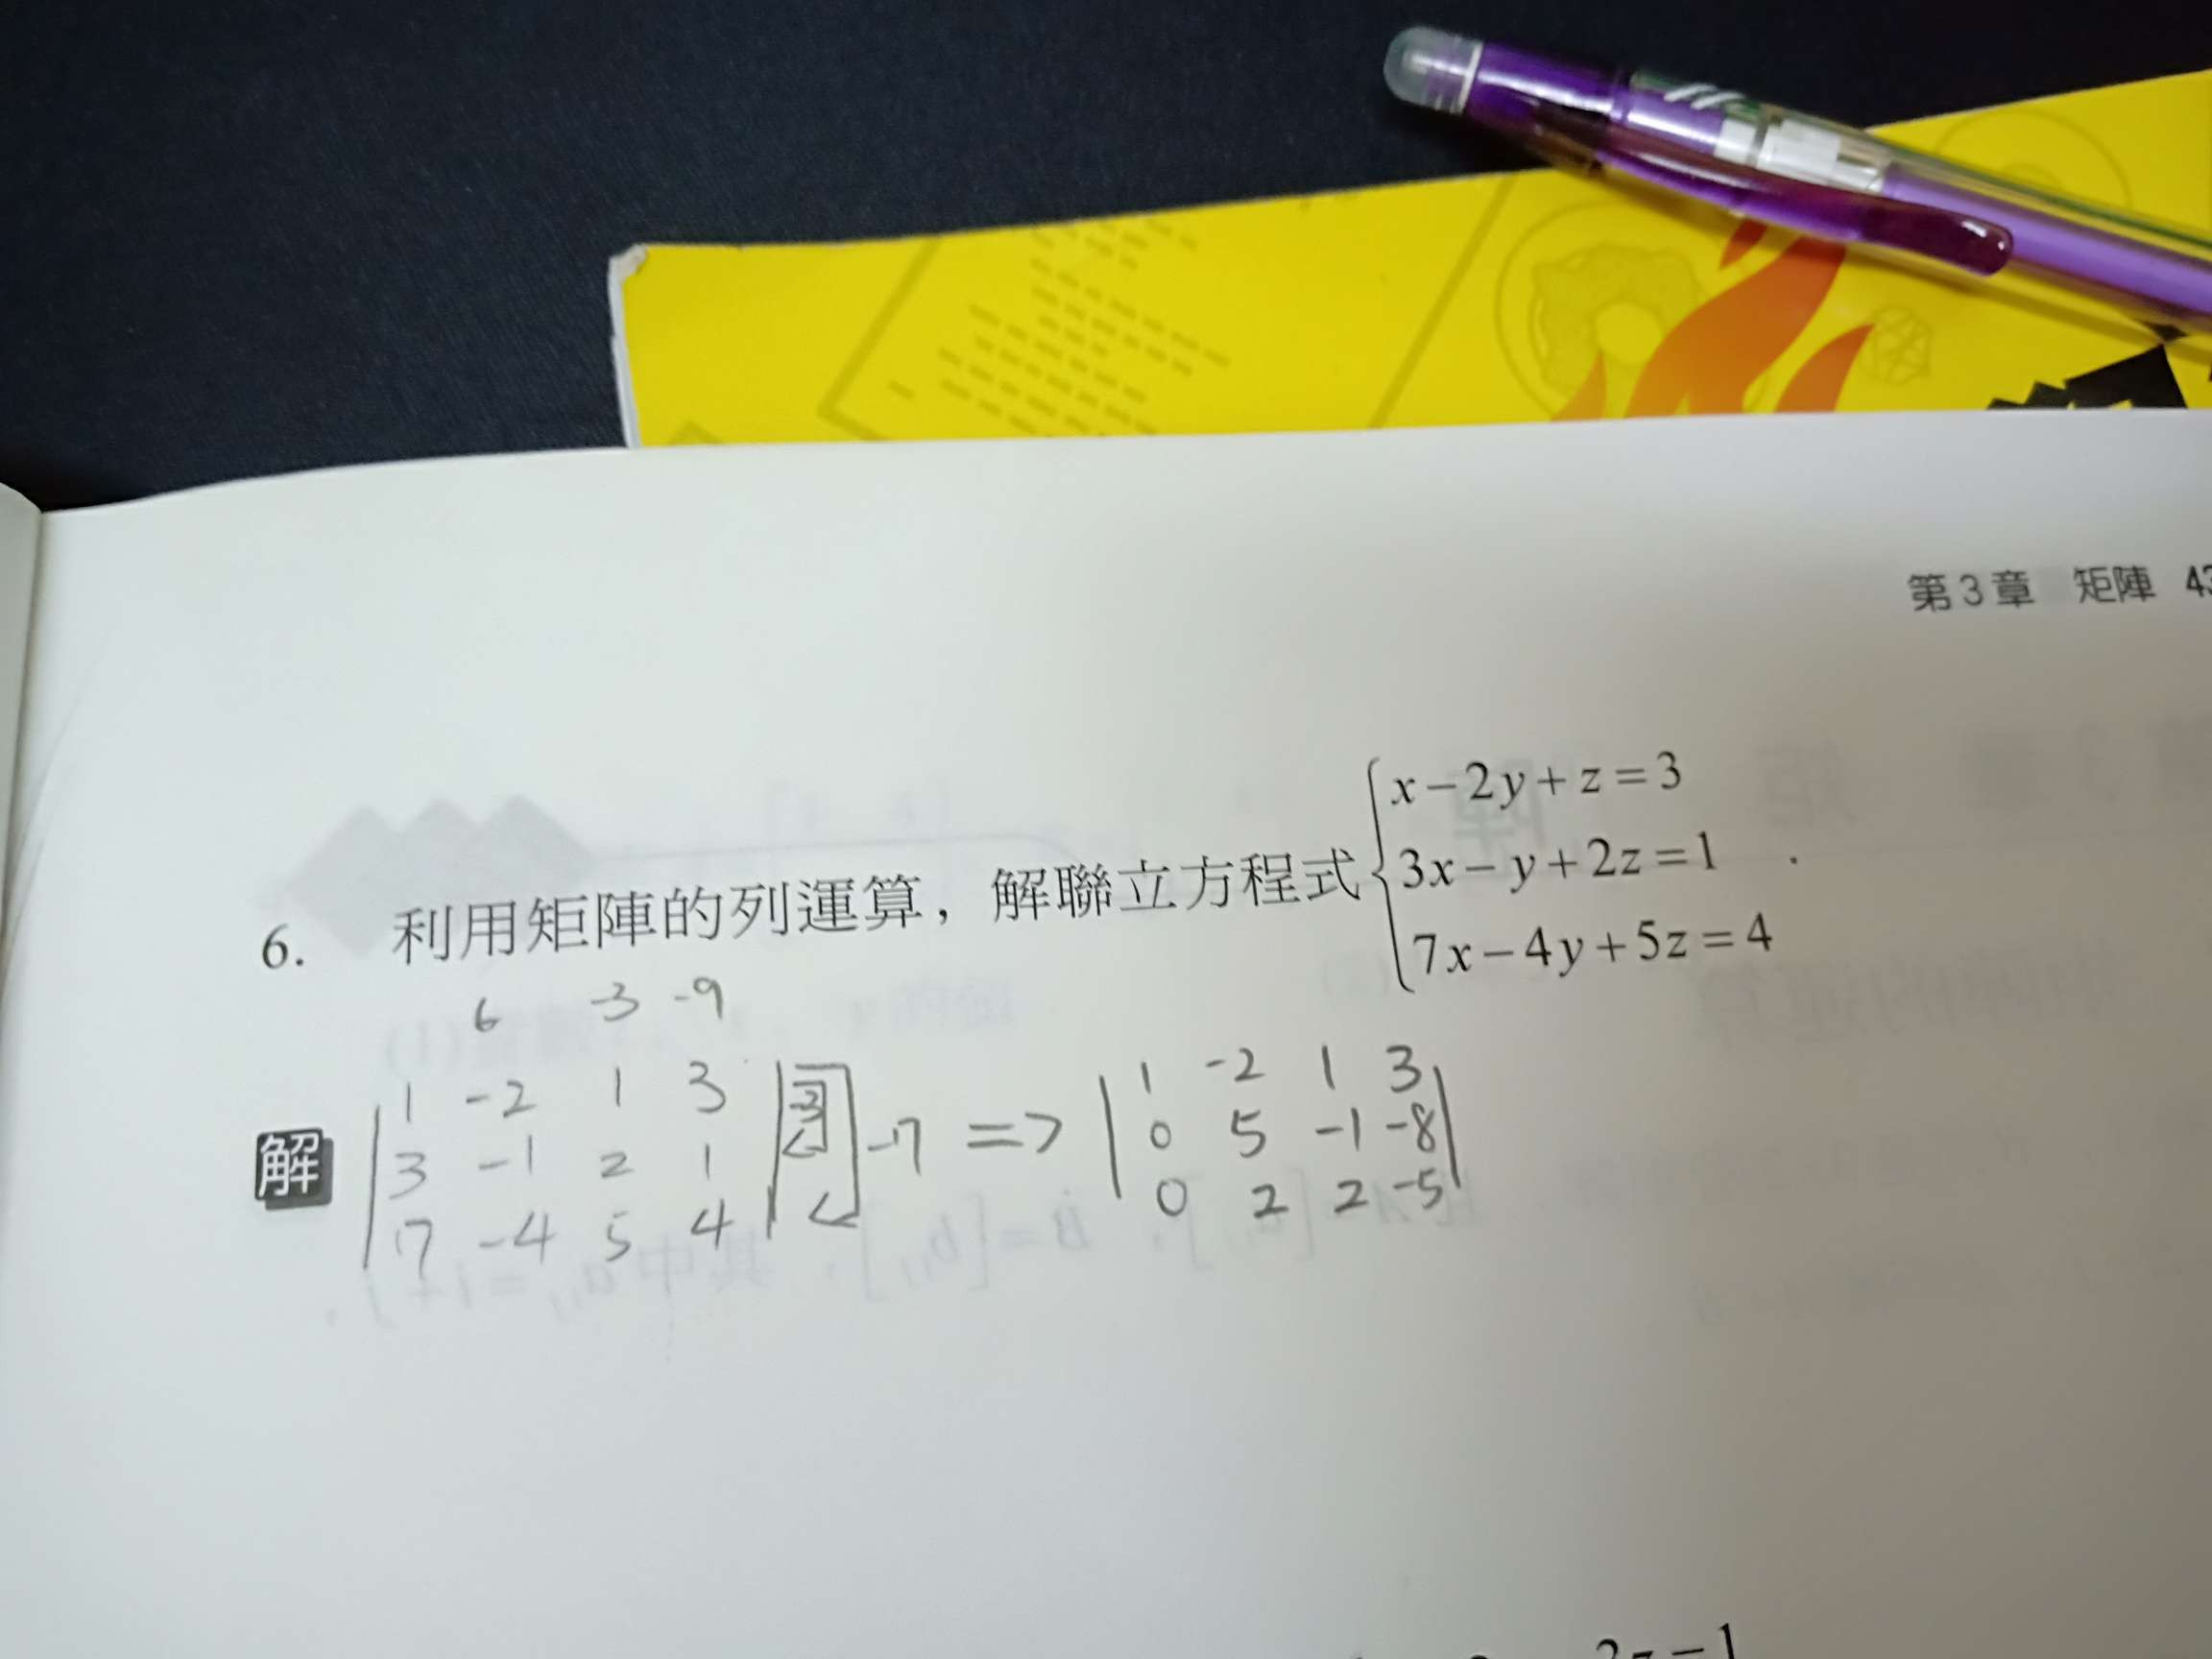 第3章 矩陣
x-2y+z=3
6. 利用矩陣的列運算，解聯立方程式 3x-y+2z=1 .
7x-4y+5z=4
6 -3 -9
1 -2 1 3 -3 1 -2 1 3
解 3 -1 2 1 -7 => 0 5 -1 -8
7 -4 5 4 0 2 2 -5